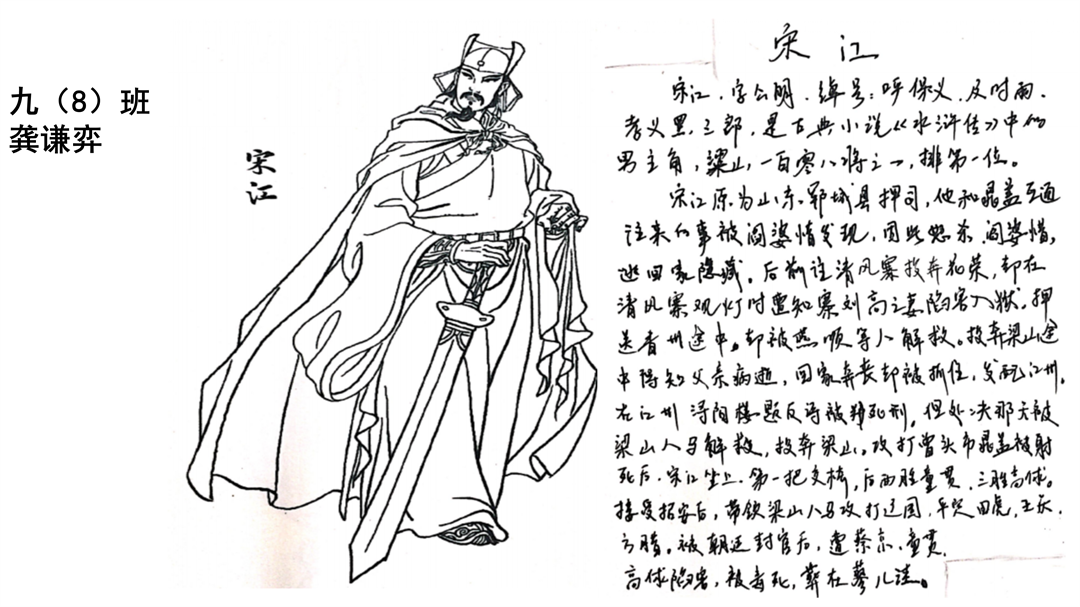 九（8）班
龚谦弈
宋江
宋江
宋江，字公明，绰号：呼保义、及时雨、
孝义黑三郎，是古典小说《水浒传》中的
男主角，梁山一百零八将之一，排第一位。
宋江原为山东郓城县押司，他和晁盖互通
往来的事被阎婆惜发现，因此怒杀阎婆惜，
逃回家隐藏。后前往清风寨投奔花荣，却在
清风寨观灯时遭知寨刘高之妻陷害入狱。押
送青州途中，却被燕顺等人解救。投奔梁山途
中得知父亲病逝，回家奔丧却被抓住，发配江州。
在江州浔阳楼题反诗被判死刑，但处决那天被
梁山人马解救，投奔梁山。攻打曾头市晁盖被射
死后，宋江坐上第一把交椅，后两胜童贯，三胜高俅。
接受招安后，带领梁山人马攻打辽国，平定田虎，王庆，
方腊。被朝廷封官后，遭蔡京，童贯，
高俅陷害，被毒死，葬在蓼儿洼。